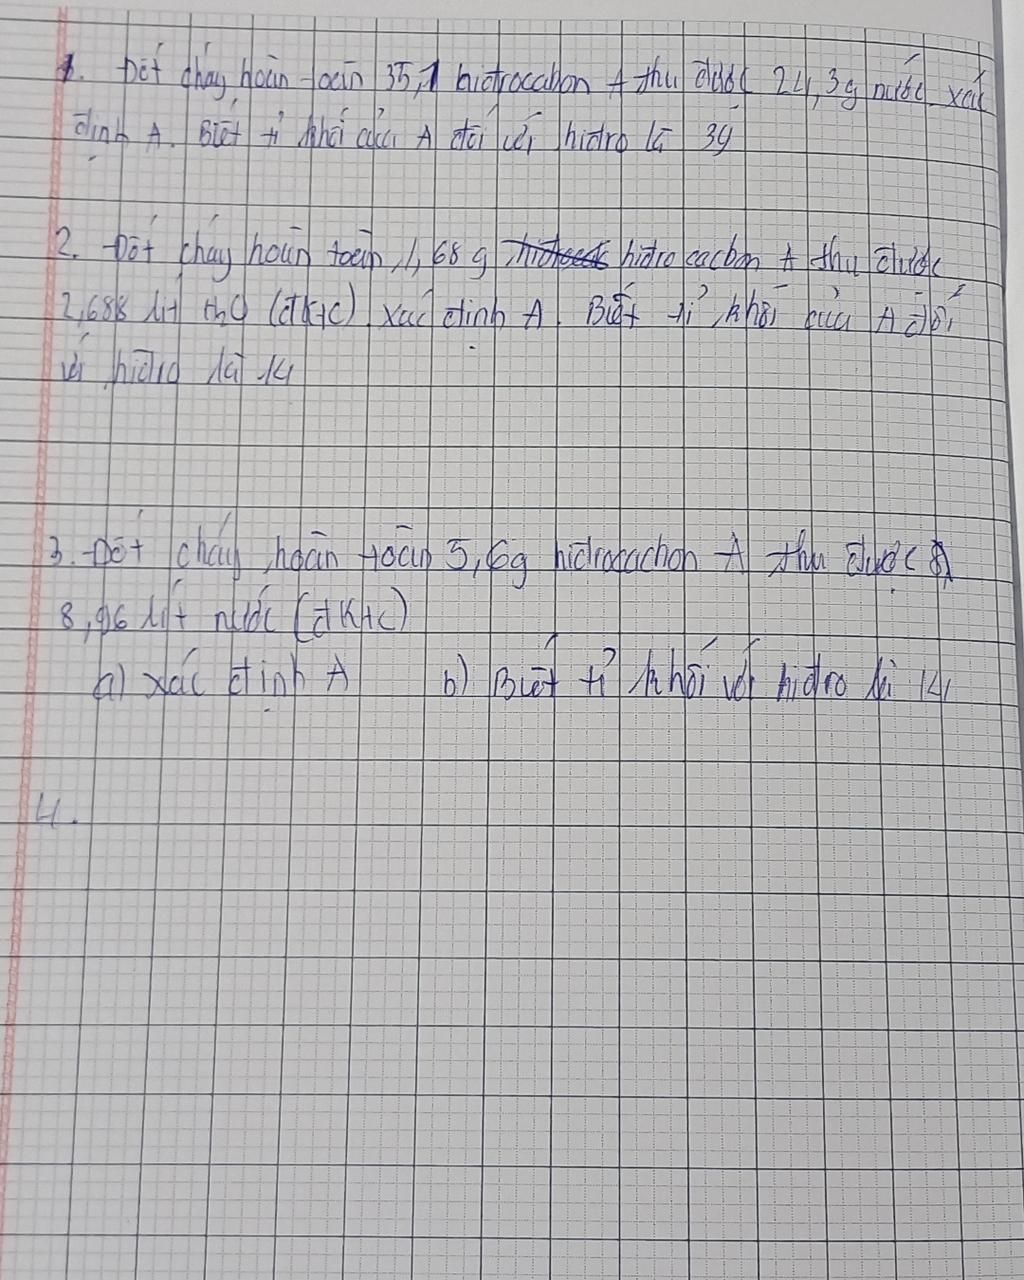 1. Đốt cháy hoàn toàn 35,1 hiđrocacbon A thu được 24,3g nước. xác
định A. Biết tỉ khối của A đối với hiđro là 39
2. Đốt cháy hoàn toàn 1,68 g hiđro cacbon A thu được
2,688 lít H2O (đktc). xác định A. Biết tỉ khối của A đối
với hiđro là 14
3. Đốt cháy hoàn toàn 5,6g hiđrocacbon A thu được
8,96 lít nước (đktc)
a) xác định A b) Biết tỉ khối với hiđro là 14
4.